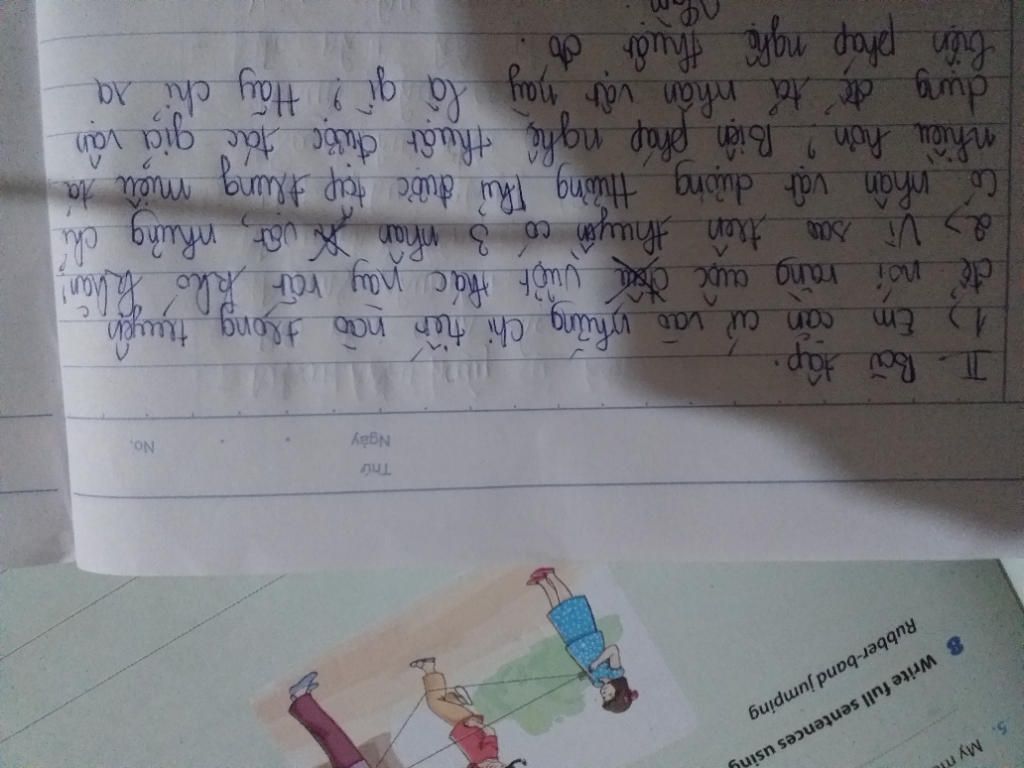 Thứ
Ngày
No.
II. Bài tập.
1> Em căn cứ vào những chi tiết nào trong truyện
để nói rằng cuộc vượt thác này rất khó khăn?
2> Vì sao trên thuyền có 3 nhân vật, nhưng chỉ
có nhân vật dượng Hương Thư được tập trung miêu tả
nhiều hơn? Biện pháp nghệ thuật được tác giả vận
dụng để tả nhân vật này là gì? Hãy chỉ ra
biện pháp nghệ thuật đó.
5.
My m
8 Write full sentences using
Rubber-band jumping